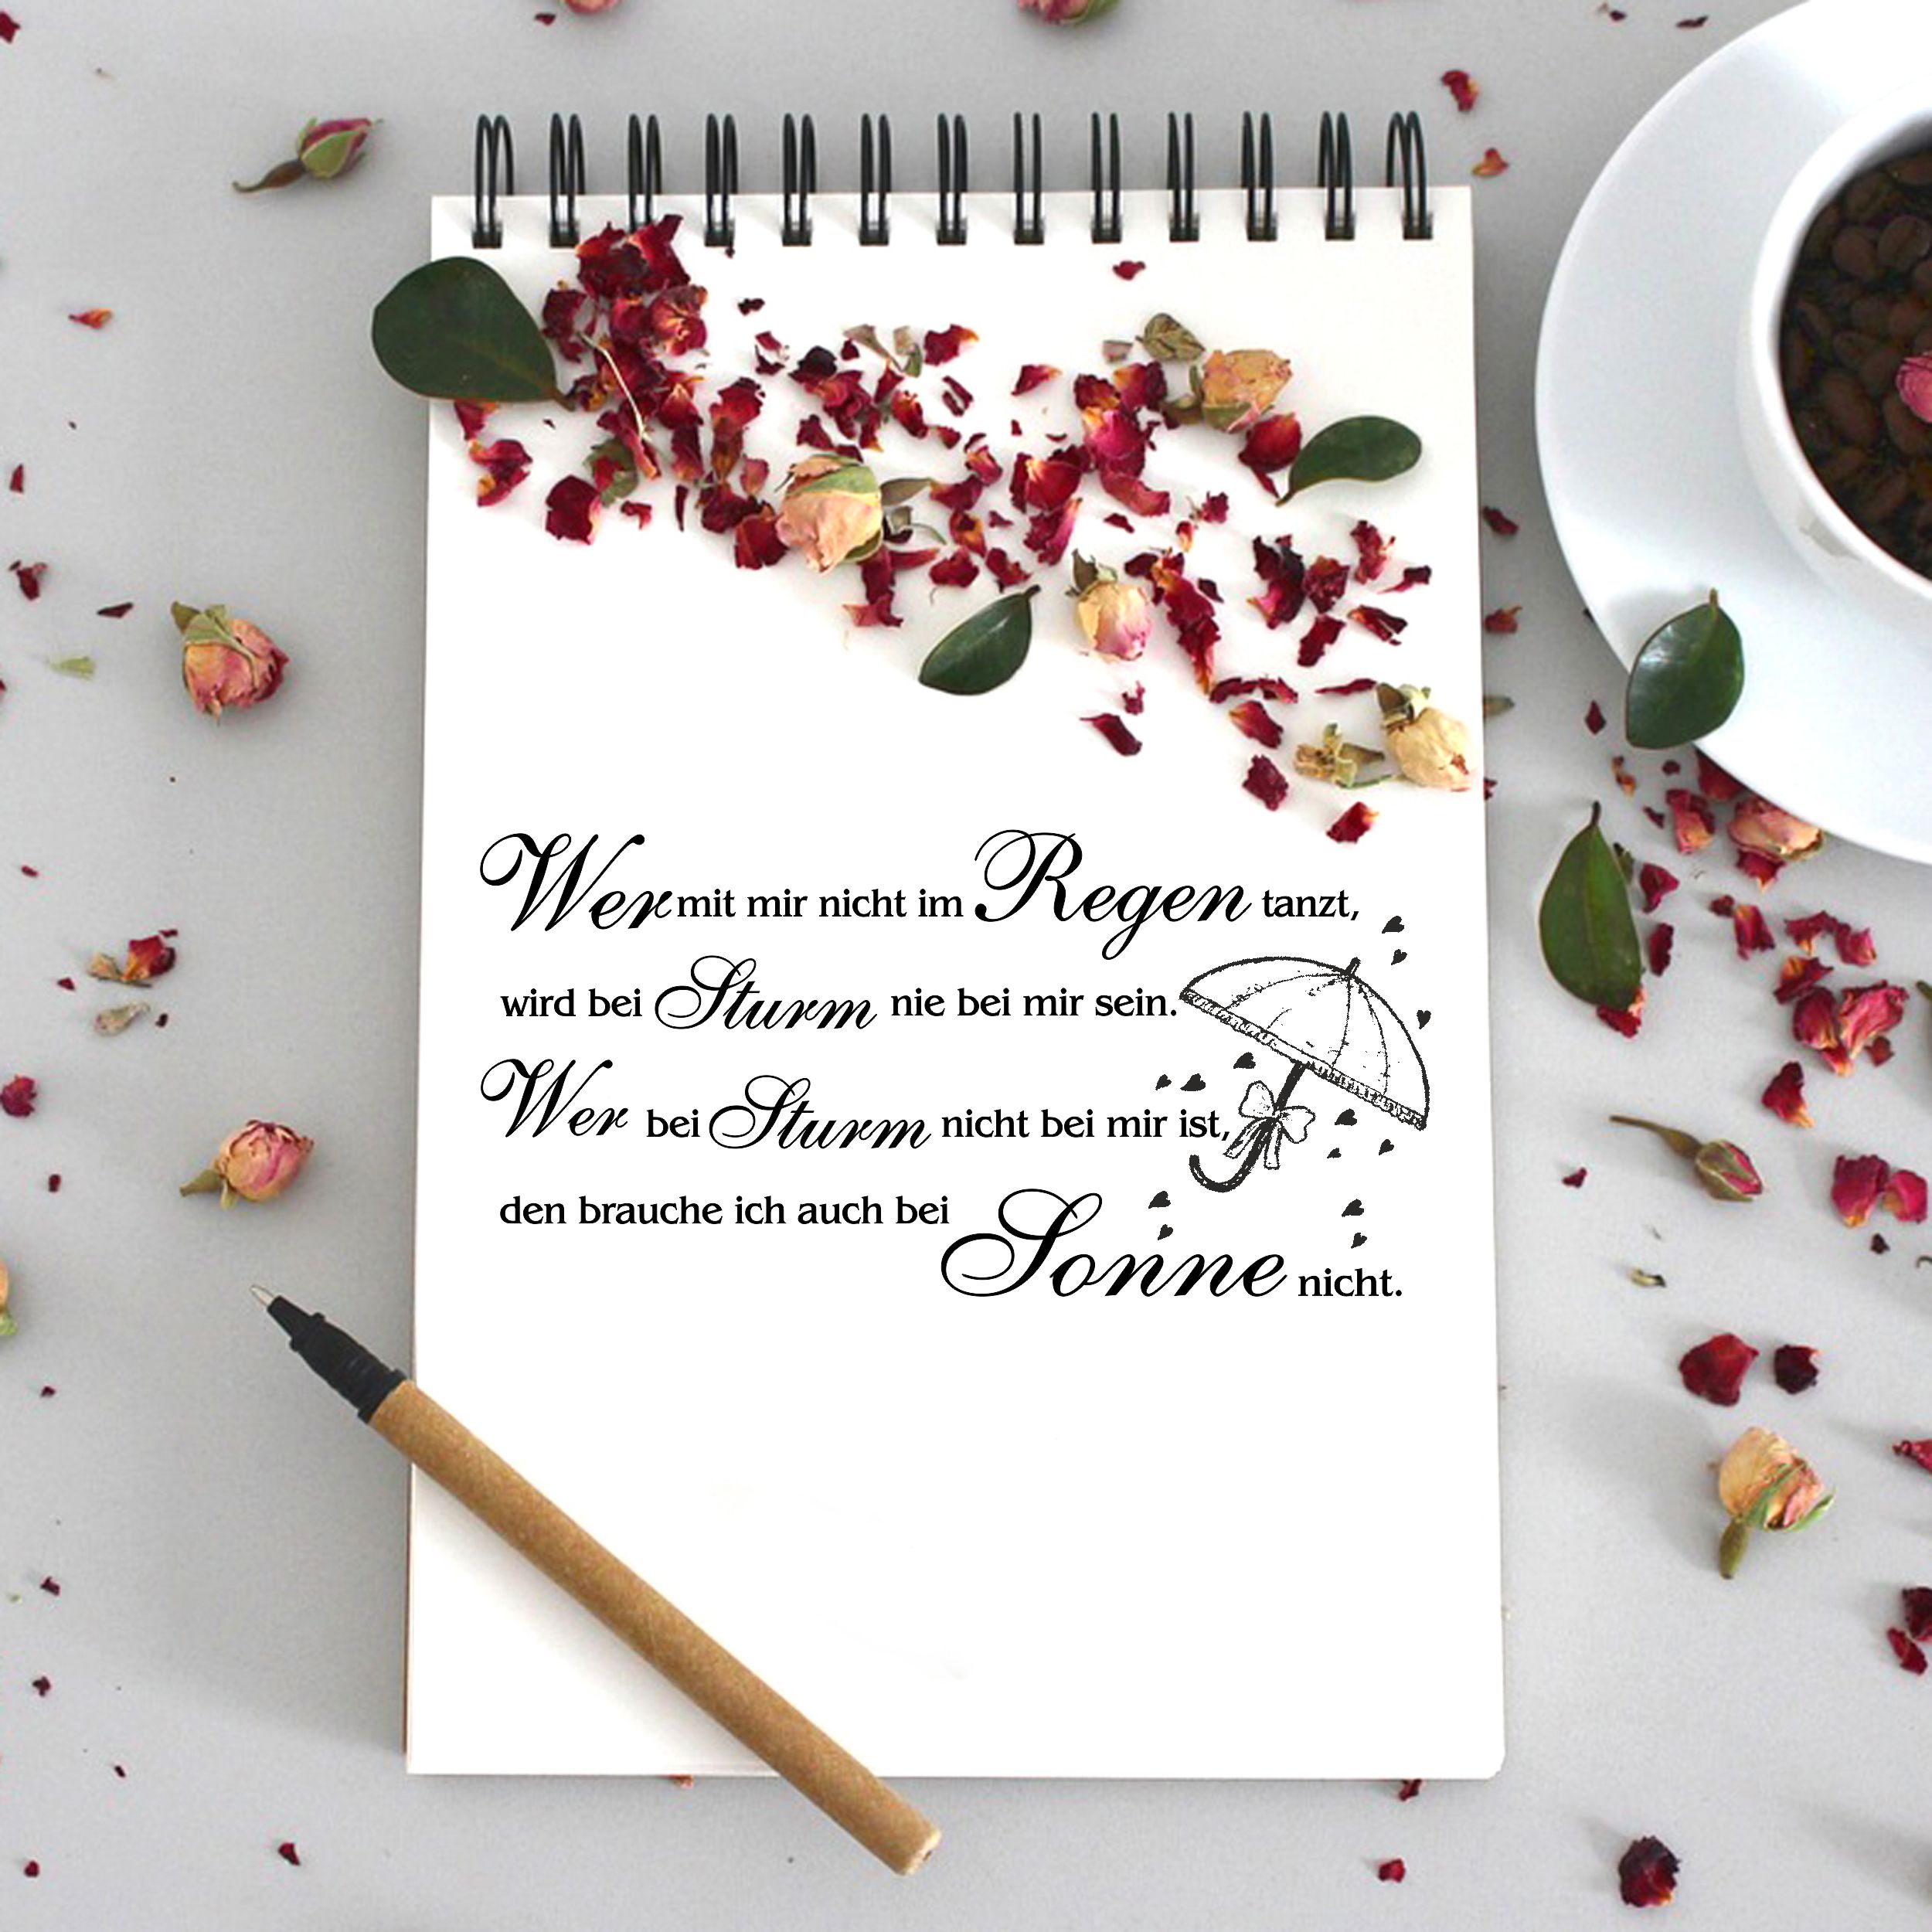 Wer mit mir nicht im Regen tanzt,
wird bei Sturm nie bei mir sein.
Wer bei Sturm nicht bei mir ist,
den brauche ich auch bei
Sonne nicht.